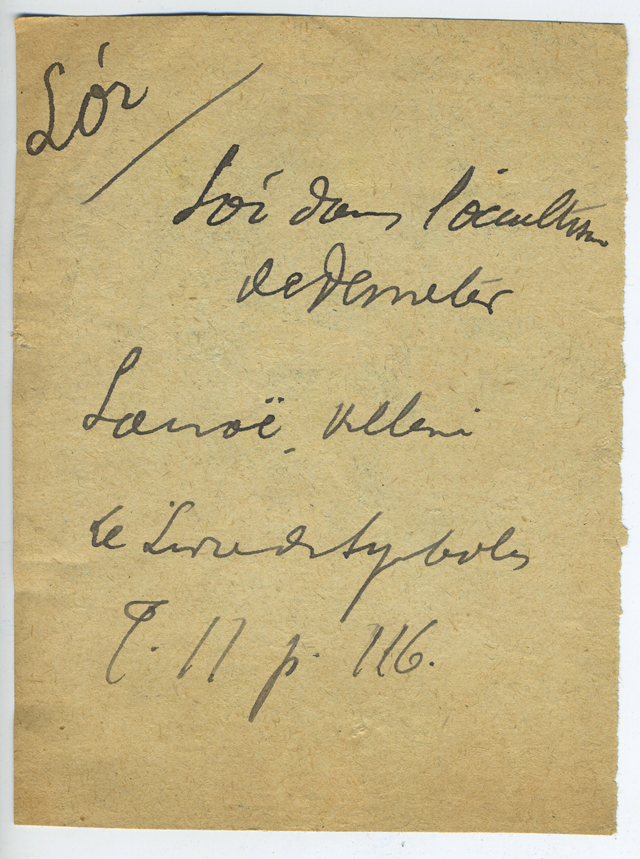 Lór
Lóri dans l'occultism
de Demeter
Lanoë, Villeni
Le Livre des Symboles
T. II p. 116.